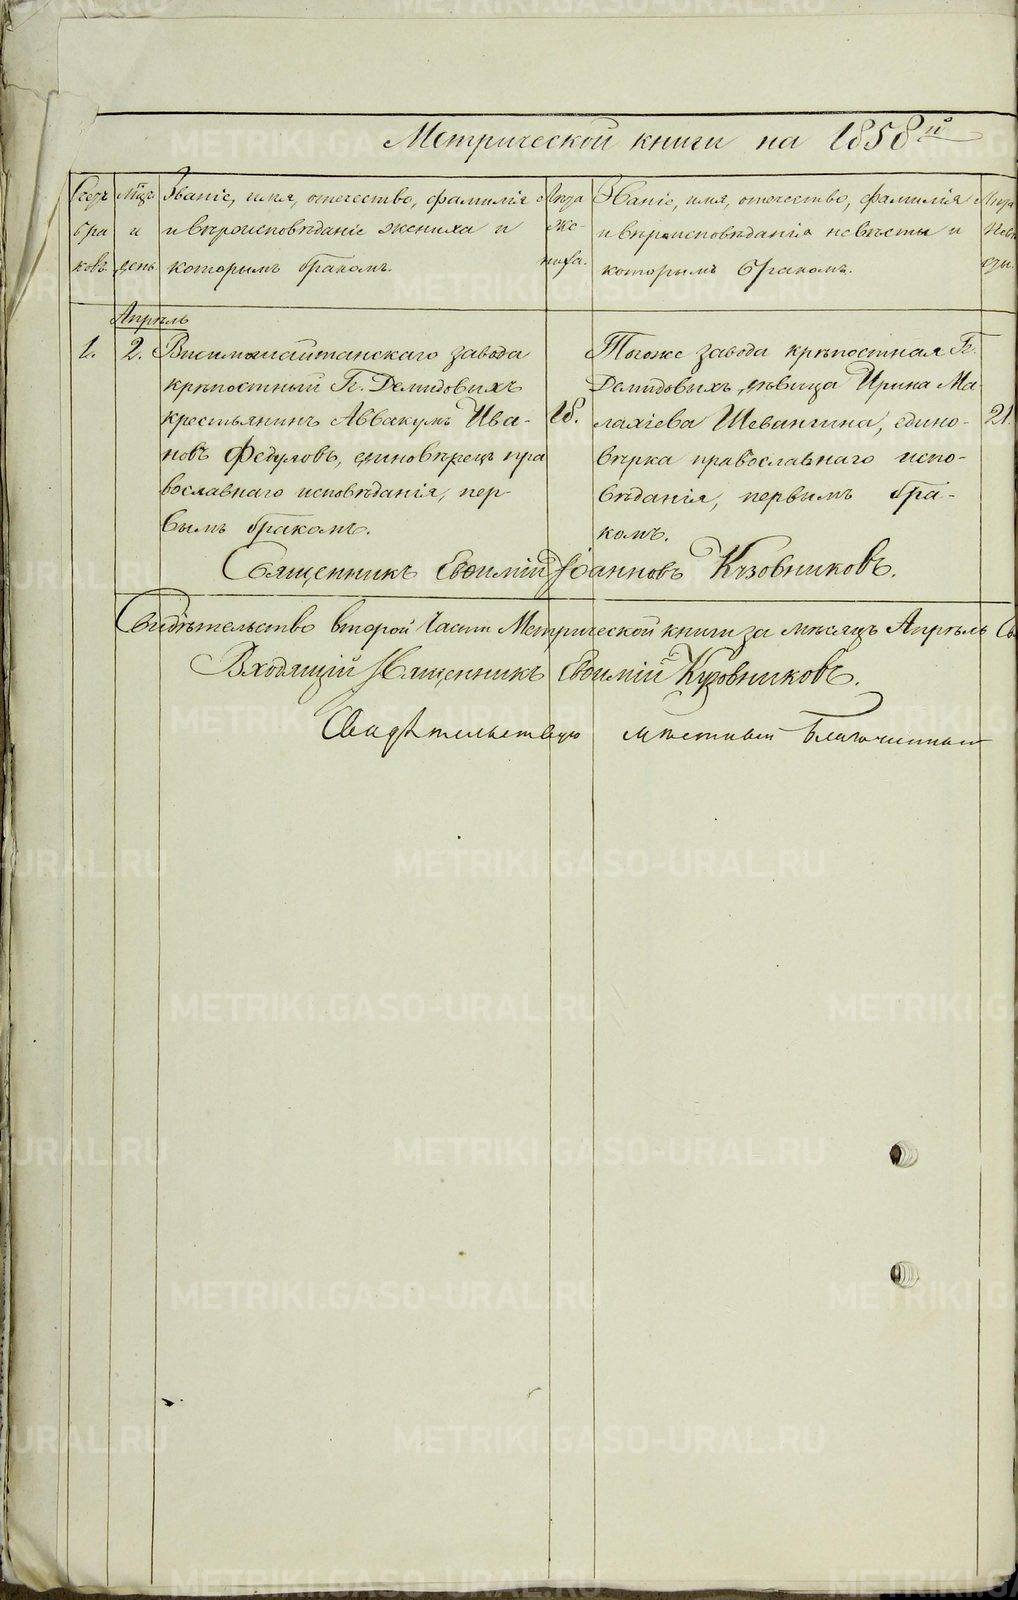 Метрической книги на 1858й
Счетъ
бра
ковъ.
Мцъ
и
день
Званіе, имя, отечество, фамилія
и вѣроисповѣданіе жениха и
которымъ бракомъ.
Лѣта
же-
ниха.
Званіе, имя, отечество, фамилія
и вѣроисповѣданіе невѣсты и
которымъ бракомъ.
Лѣта
Невѣ
сты.
Апрѣль
1.
2.
Висимошайтанскаго завода
крѣпостный Гг. Демидовыхъ
крестьянинъ Аввакумъ Ива-
новъ Федуловъ, единовѣрецъ пра
вославнаго исповѣданія, пер
вымъ бракомъ.
18.
Тогоже завода крѣпостная Гг.
Демидовыхъ, дѣвица Ирина Ма
лахіева Шевангина, едино-
вѣрка православнаго испо-
вѣданія, первымъ бра-
комъ.
21.
Священникъ Евѳимій Іоанновъ Кузовниковъ.
Свидѣтельство второй Части Метрической книги за мѣсяцъ Апрѣль Св
Входящій Священникъ Евѳимій Кузовниковъ.
Свидѣтельствую мѣстный Благочинный
METRIKI.GASO-URAL.RU